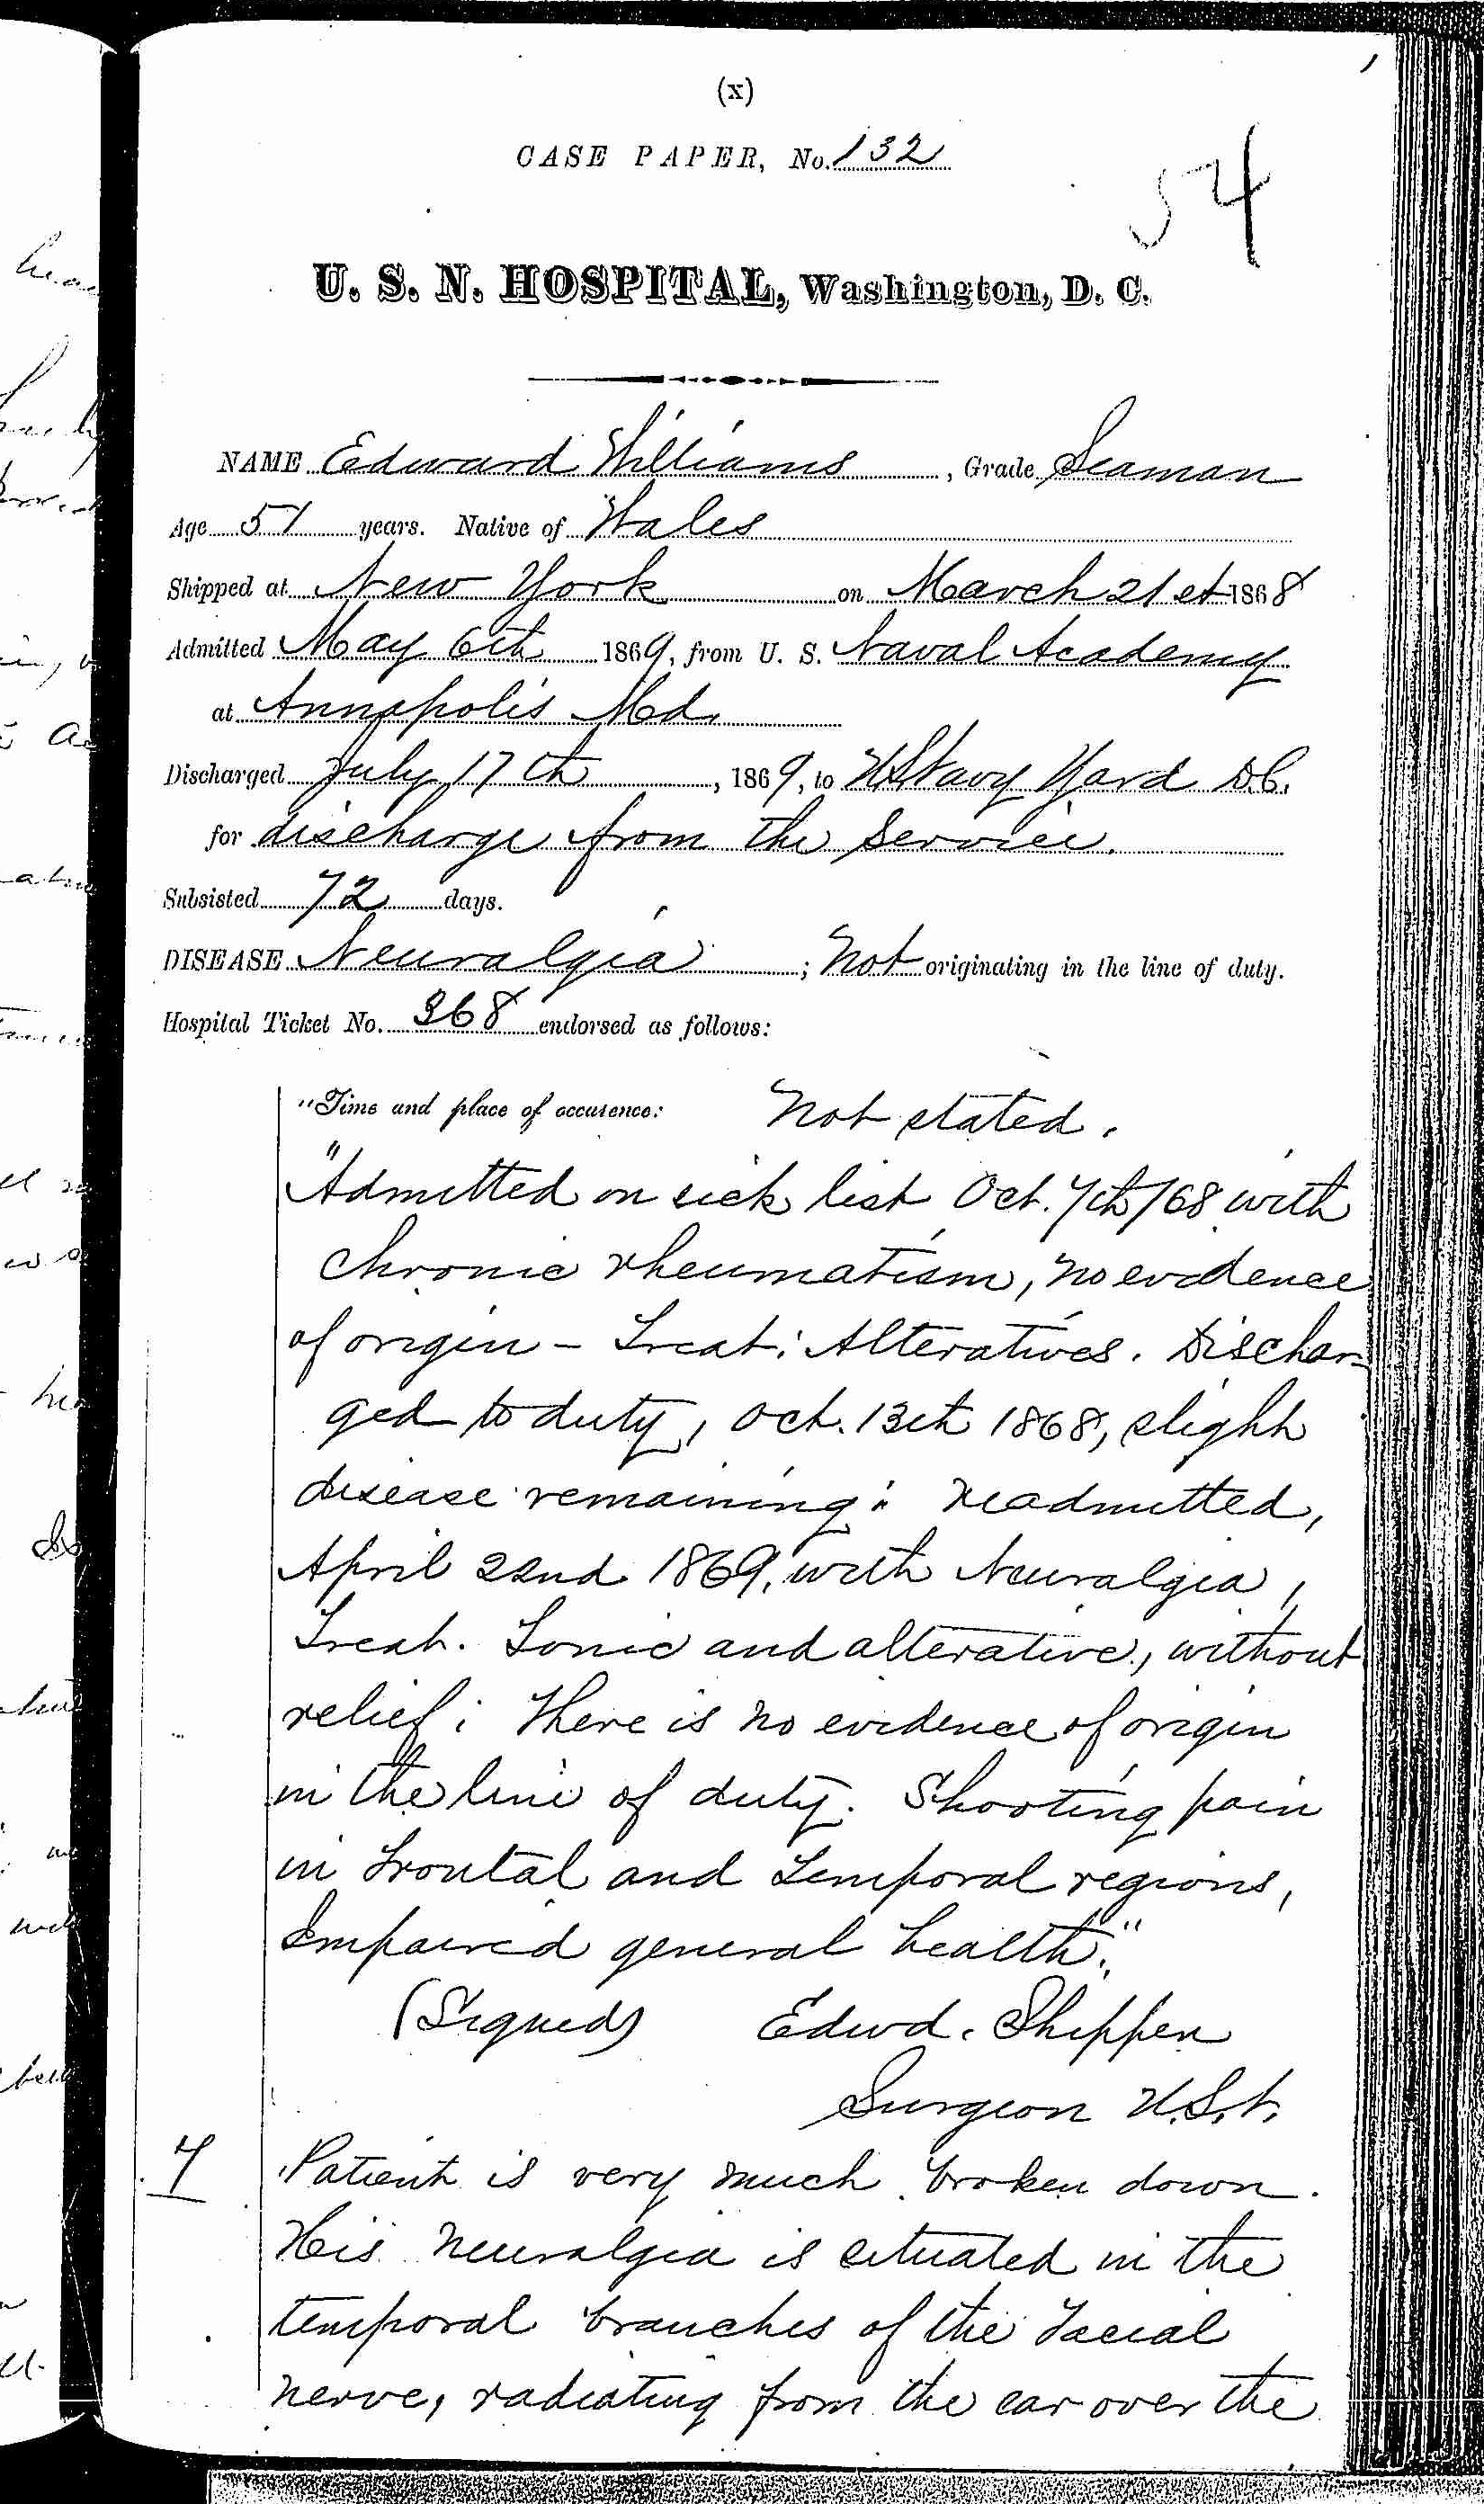 (x)
CASE PAPER, No. 132
54
U. S. N. HOSPITAL, Washington, D. C.
NAME Edward Williams, Grade Seaman
Age 51 years. Native of Wales
Shipped at New York on March 21st 1868
Admitted May 6th 1869, from U. S. Naval Academy
at Annapolis Md.
Discharged July 17th, 1869, to U S Navy Yard D.C.
for discharge from the Service.
Subsisted 72 days.
DISEASE Neuralgia; Not originating in the line of duty.
Hospital Ticket No. 368 endorsed as follows:
"Time and place of occurence: Not stated.
"Admitted on sick list Oct. 7th/68 with
chronic rheumatism, no evidence
of origin - Treat: Alteratives. Dischar-
ged to duty, Oct. 13th 1868, slight
disease remaining: Readmitted,
April 22nd 1869, with Neuralgia,
Treat. Tonic and alterative, without
relief; There is no evidence of origin
in the line of duty. Shooting pain
in frontal and temporal regions,
Impaired general health."
(Signed) Edwd. Shippen
Surgeon U.S.N.
7 Patient is very much broken down.
His neuralgia is situated in the
temporal branches of the facial
nerve, radiating from the ear over the